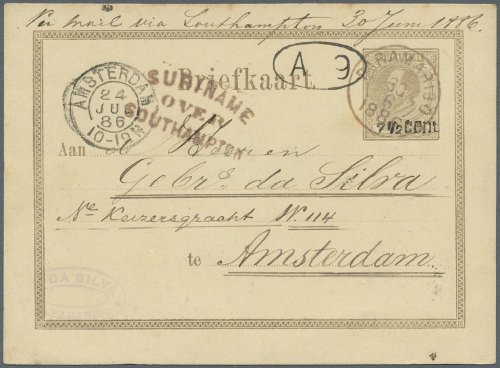 Per mail via Southampton 30 Juni 1886.
Briefkaart
A 9
SURINAME
OVER
SOUTHAMPTON
AMSTERDAM
24
JUL
86
10-12N
PARAMARIBO
30
6
1886
7½ cent
Aan de Heeren
Gebrs. da Silva
Nr. Keizersgracht W. 114
te Amsterdam.
DA SILVA